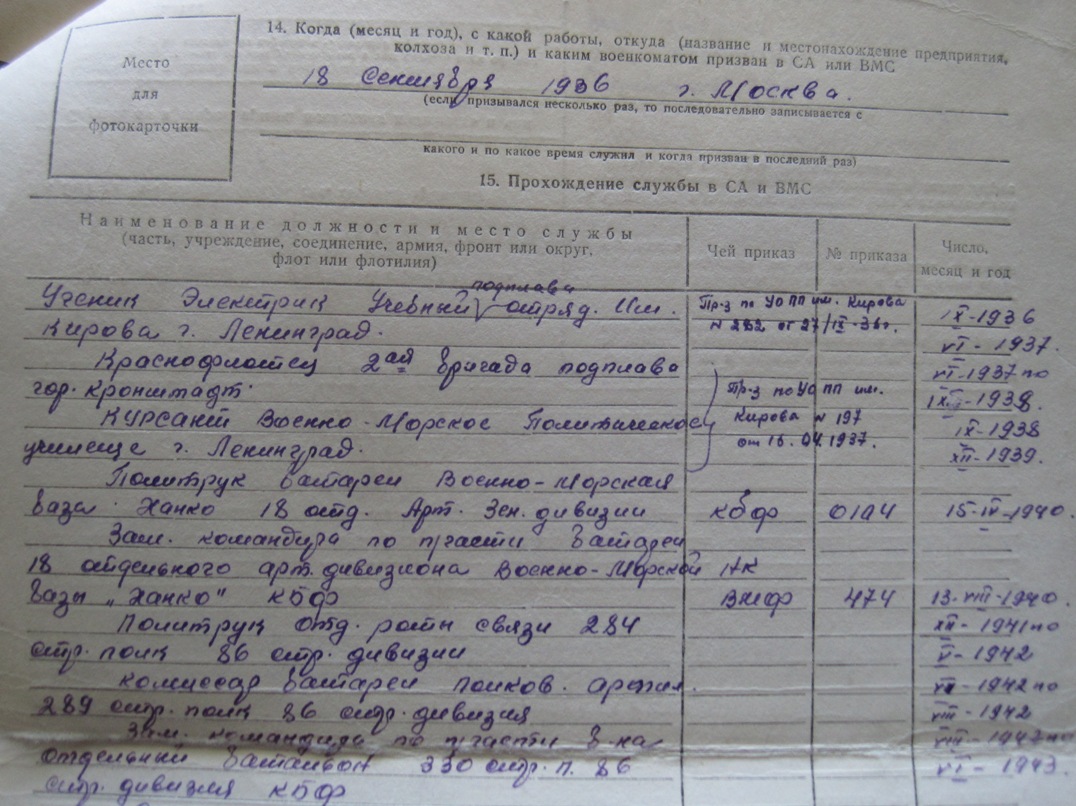 Место
для
фотокарточки
14. Когда (месяц и год), с какой работы, откуда (название и местонахождение предприятия,
колхоза и т. п.) и каким военкоматом призван в СА или ВМС
18 Сентября 1936 г. Москва.
(если призывался несколько раз, то последовательно записывается с
какого и по какое время служил и когда призван в последний раз)
15. Прохождение службы в СА и ВМС
Наименование должности и место службы
(часть, учреждение, соединение, армия, фронт или округ,
флот или флотилия)
Чей приказ
№ приказа
Число,
месяц и год
подплава
Ученик Электрик Учебный отряд. Им. Пр-з по УОПП им. Кирова IX-1936
Кирова г. Ленинград. N 282 от 27/IX-36г. VI-1937.
Краснофлотец 2ая бригада подплава VI-1937 по
гор. Кронштадт Пр-з по УОПП им. IX-1938.
Курсант Военно-Морское Политическое Кирова N 197 IX-1938
училище г. Ленинград. от 16.04.1937. XII-1939.
Политрук батареи Военно-Морская
база Ханко 18 отд. Арт. Зен. дивизии КБФ 0104 15-IV-1940.
Зам. командира по п/части батареи
18 отдельного арт. дивизиона Военно-Морской НК
базы „Ханко" КБФ ВМФ 474 13-VIII-1940.
Политрук отд. роты связи 284 XII-1941 по
стр. полк 86 стр. дивизии V-1942
комиссар батареи полков. артил. 1942 по
289 стр. полк 86 стр. дивизия VIII-1942
Зам. командира по п/части б-на VIII-1942 по
отдельный батальон 330 стр. п. 86 VI-1943.
стр. дивизия КБФ